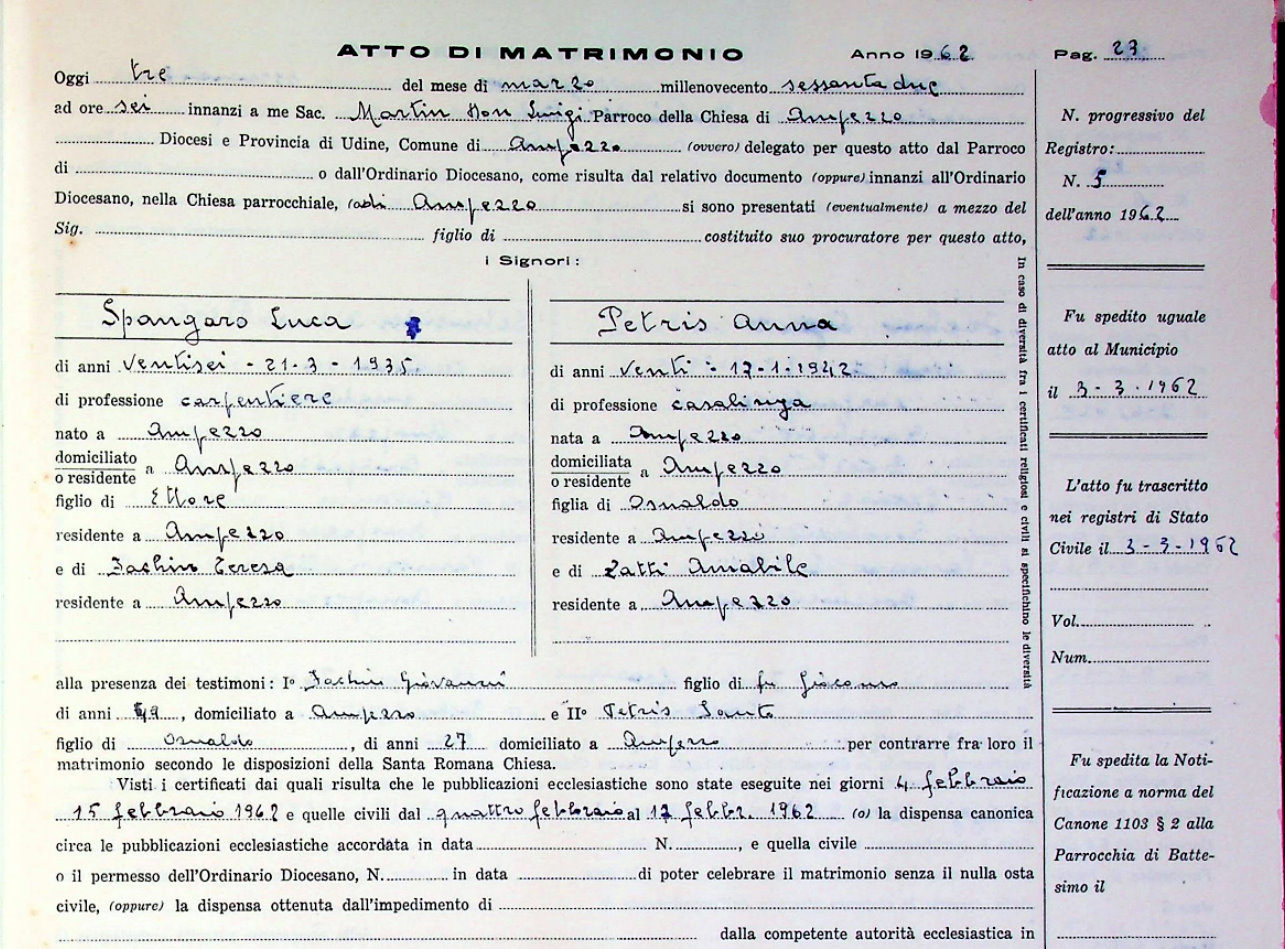 ATTO DI MATRIMONIO Anno 1962 Pag. 23
Oggi tre del mese di marzo millenovecento sessantadue
ad ore sei innanzi a me Sac. Martin Don Luigi Parroco della Chiesa di Ampezzo
Diocesi e Provincia di Udine, Comune di Ampezzo (ovvero) delegato per questo atto dal Parroco
di o dall'Ordinario Diocesano, come risulta dal relativo documento (oppure) innanzi all'Ordinario
Diocesano, nella Chiesa parrocchiale, di Ampezzo si sono presentati (eventualmente) a mezzo del
Sig. figlio di costituito suo procuratore per questo atto,
i Signori:
Spangaro Luca
di anni ventisei - 21-3-1935
di professione carpentiere
nato a Ampezzo
domiciliato
o residente a Ampezzo
figlio di Ettore
residente a Ampezzo
e di Fachin Teresa
residente a Ampezzo
Petris Anna
di anni venti - 17-1-1942
di professione casalinga
nata a Ampezzo
domiciliata
o residente a Ampezzo
figlia di Osualdo
residente a Ampezzo
e di Zatti Amabile
residente a Ampezzo
In caso di diversità fra i certificati religiosi e civili si specifichino le diversità
alla presenza dei testimoni: I° Fachin Giovanni figlio di fu Giacomo
di anni , domiciliato a Ampezzo e II° Petris Santo
figlio di Osualdo, di anni 27 domiciliato a Ampezzo per contrarre fra loro il
matrimonio secondo le disposizioni della Santa Romana Chiesa.
Visti i certificati dai quali risulta che le pubblicazioni ecclesiastiche sono state eseguite nei giorni 4 febbraio
15 febbraio 1962 e quelle civili dal quattro febbraio al 12 febbr. 1962 (o) la dispensa canonica
circa le pubblicazioni ecclesiastiche accordata in data N. , e quella civile
o il permesso dell'Ordinario Diocesano, N. in data di poter celebrare il matrimonio senza il nulla osta
civile, (oppure) la dispensa ottenuta dall'impedimento di
dalla competente autorità ecclesiastica in
N. progressivo del
Registro:
N. 5
dell'anno 1962
Fu spedito uguale
atto al Municipio
il 3-3-1962
L'atto fu trascritto
nei registri di Stato
Civile il 3-3-1962
Vol.
Num.
Fu spedita la Noti-
ficazione a norma del
Canone 1103 § 2 alla
Parrocchia di Batte-
simo il